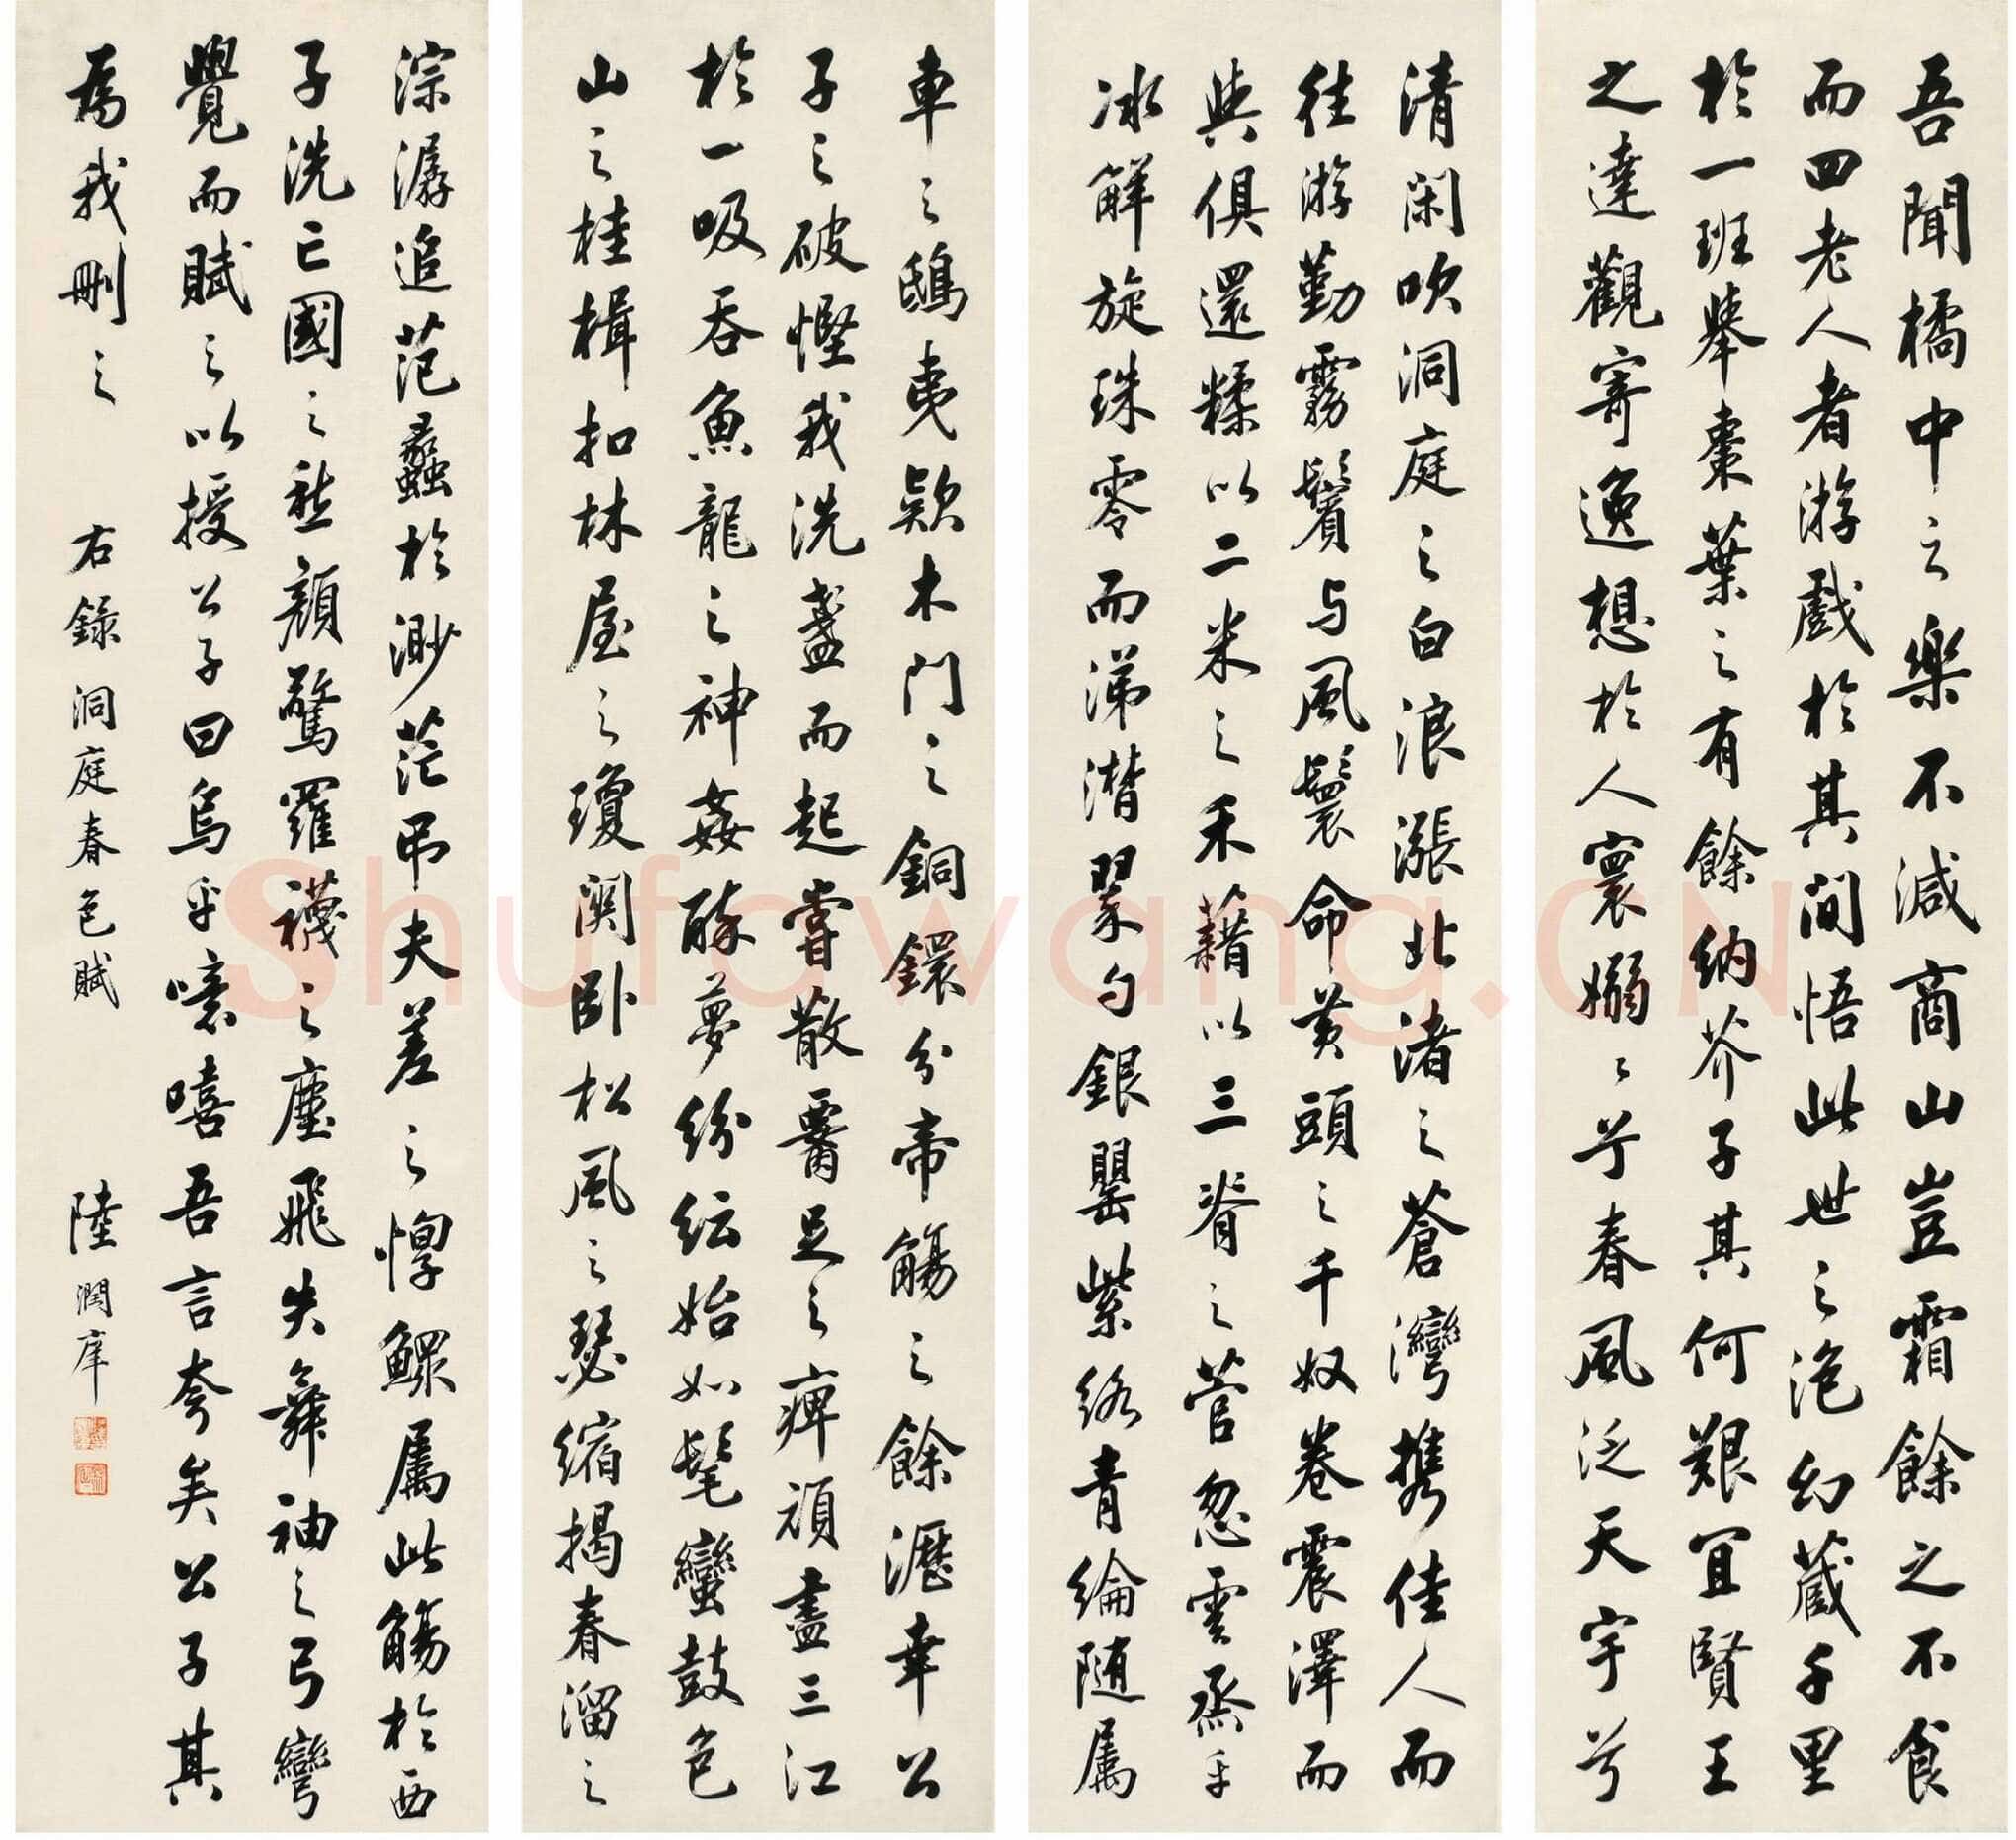 吾聞橘中之樂不減商山豈霜餘之不食
而四老人者游戲於其間悟此世之泡幻藏千里
於一班舉棗葉之有餘納芥子其何艱宜賢王
之達觀寄逸想於人寰嫋〻兮春風泛天宇兮
清閑吹洞庭之白浪漲北渚之蒼灣攜佳人而
往游勤霧鬢与風鬟命黃頭之千奴卷震澤而
與俱還糅以二米之禾藉以三脊之菅忽雲烝乎
冰解旋珠零而涕潸翠勺銀罌紫絡青綸随属
車之鴟夷款木門之銅鐶分帝觴之餘瀝幸公
子之破慳我洗盞而起嘗散腰足之痹頑盡三江
於一吸吞魚龍之神姦醉夢紛紜始如髦蠻鼓包
山之桂楫扣林屋之瓊関卧松風之瑟縮揭春溜之
淙潺追范蠡於渺茫弔夫差之惸鰥属此觴於西
子洗亡國之愁顏驚羅襪之塵飛失舞袖之弓彎
覺而賦之以授公子曰烏乎噫嘻吾言夸矣公子其
為我刪之
右錄洞庭春色賦
陸潤庠
Shufawang.CN